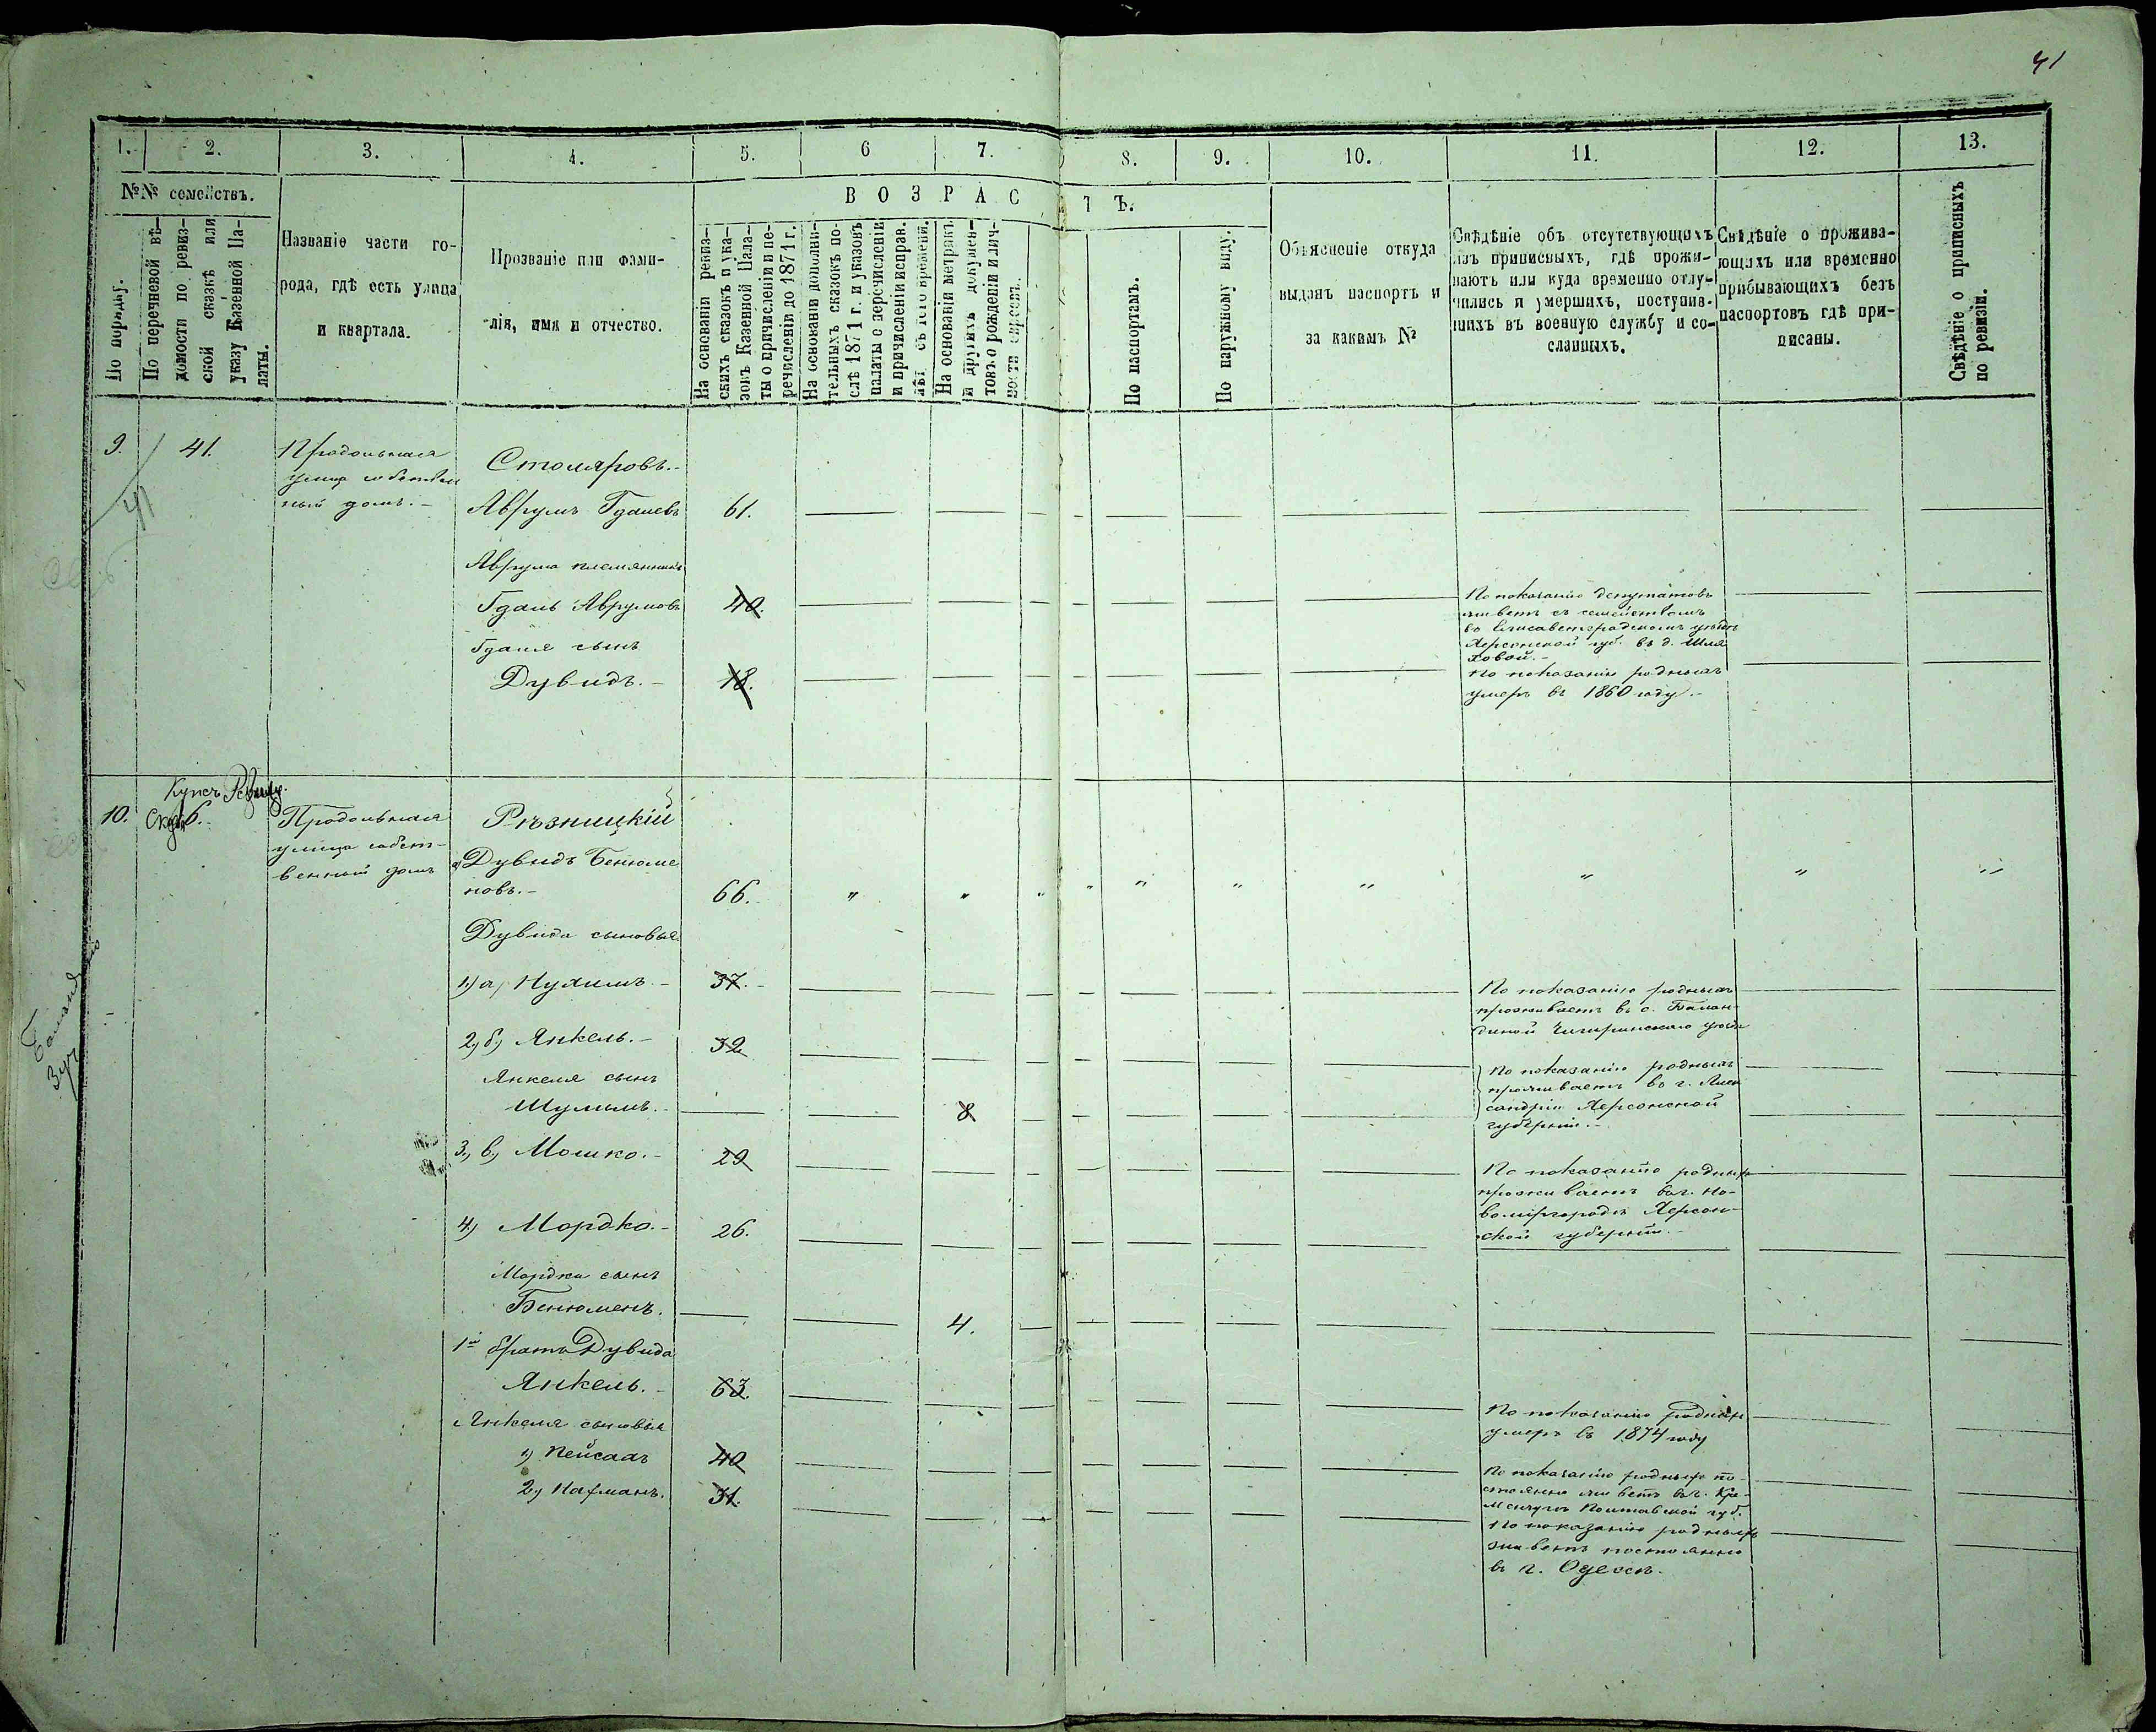 41
1. 2. 3. 4. 5. 6 7. 8. 9. 10. 11. 12. 13.
№№ семействъ.
По порядку.
По перечневой вѣ-
домости по ревиз-
ской сказкѣ или
указу Казенной Па-
латы.
Названіе части го-
рода, гдѣ есть улица
и квартала.
Прозваніе или фами-
лія, имя и отчество.
ВОЗРАСТЪ.
На основаніи ревиз-
скихъ сказокъ и ука-
зовъ Казенной Пала-
ты о причисленіи и пе-
речисленіи до 1871 г.
На основаніи дополни-
тельныхъ сказокъ по-
слѣ 1871 г. и указовъ
палаты о перечисленіи
и причисленіи исправ.
лѣт съ того времени.
На основаніи метрикъ
и другихъ докумен-
товъ о рожденіи и лич-
ности евреевъ.
По паспортамъ.
По наружному виду.
Объясненіе откуда
выданъ паспортъ и
за какимъ №
Свѣдѣніе объ отсутствующихъ
изъ приписныхъ, гдѣ прожи-
ваютъ или куда временно отлу-
чились и умершихъ, поступив-
шихъ въ военную службу и со-
сланныхъ.
Свѣдѣніе о прожива-
ющихъ или временно
прибывающихъ безъ
паспортовъ гдѣ при-
писаны.
Свѣдѣніе о приписныхъ
по ревизіи.
9. 41.
41
Продольная
улица собствен
ный домъ.-
Столяровъ.-
Аврумъ Гдалевъ 61.
Аврума племянникъ
Гдаль Аврумовъ 40.
По показанію депутатовъ
живетъ съ семействомъ
въ Елисаветградскомъ уѣздѣ
Херсонской губ. въ д. Шля
ховой.-
Гдаля сынъ
Дувидъ.- 18.
По показанію родныхъ
умеръ въ 1860 году.-
Купеч
10. 6.
Продольная
улица собст-
венный домъ
Рѣзницкій
Дувидъ Бенюме
новъ.- 66. " " " " " " " " " "
Дувида сыновья
1) а, Нухимъ.- 37.-
По показанію родныхъ
проживаетъ въ с. Балан
диной Чигиринскаго уѣзда
2, б, Янкель.- 32
Янкеля сынъ
Шулимъ.- 8
По показанію родныхъ
проживаетъ въ г. Алек
сандріи Херсонской
губерніи.-
3, в, Мошко.- 29
По показанію родныхъ
проживаетъ въ г. Но-
вомиргородѣ Херсон-
ской губерніи.-
4, Мордко.- 26.
Мордка сынъ
Бенюменъ. 4.
1й братъ Дувида
Янкель.- 63.
По показанію родныхъ
умеръ въ 1874 году
Янкеля сыновья
1) Пейсахъ 40
По показанію родныхъ по-
стоянно живетъ въ г. Кре-
менчугѣ Полтавской губ.
2, Нахманъ. 31.
По показанію родныхъ
живетъ постоянно
въ г. Одессѣ.